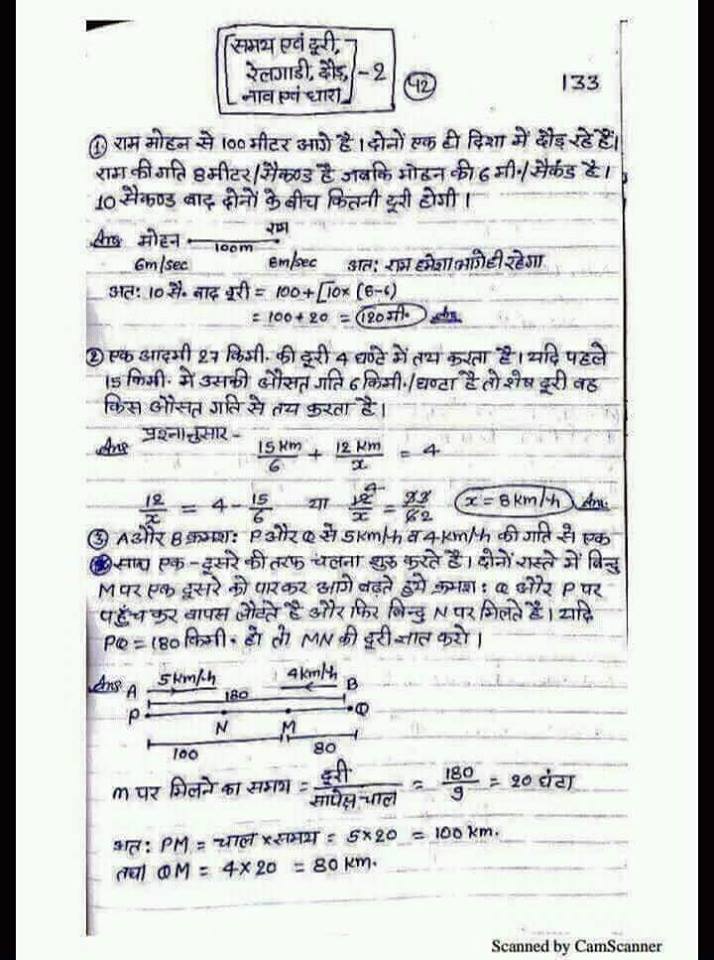 समय एवं दूरी,
रेलगाडी, दौड़, - 2
नाव एवं धारा
42
133
① राम मोहन से 100 मीटर आगे है। दोनों एक ही दिशा में दौड़ रहे हैं।
राम की गति 8 मीटर/सैकण्ड है जबकि मोहन की 6 मी./सैकंड है।
10 सैकण्ड बाद दोनों के बीच कितनी दूरी होगी।
Ans मोहन 100m राम
6m/sec 8m/sec अतः राम हमेशा आगे ही रहेगा
अतः 10 सै. बाद दूरी = 100 + [10x (8-6)
= 100 + 20 = 120 मी. Ans
② एक आदमी 27 किमी. की दूरी 4 घण्टे में तय करता है। यदि पहले
15 किमी. में उसकी औसत गति 6 किमी./घण्टा है तो शेष दूरी वह
किस औसत गति से तय करता है।
Ans प्रश्नानुसार -
15 km/6 + 12 km/x = 4
12/x = 4 - 15/6 या 12/x = 3/2 x = 8 km/h Ans
③ A और B क्रमश: P और Q से 5km/h व 4km/h की गति से एक
साथ एक-दूसरे की तरफ चलना शुरू करते है। दोनों रास्ते में बिन्दु
M पर एक दूसरे को पारकर आगे बढ़ते हुये क्रमश: Q और P पर
पहुँच कर वापस लौटते है और फिर बिन्दु N पर मिलते है। यदि
PQ = 180 किमी. हो तो MN की दूरी ज्ञात करो।
Ans A 5km/h 4km/h B
180
P N M Q
100 80
m पर मिलने का समय = दूरी/सापेक्ष चाल = 180/9 = 20 घंटा
अत: PM = चाल x समय = 5x20 = 100 km.
तथा QM = 4x20 = 80 km.
Scanned by CamScanner